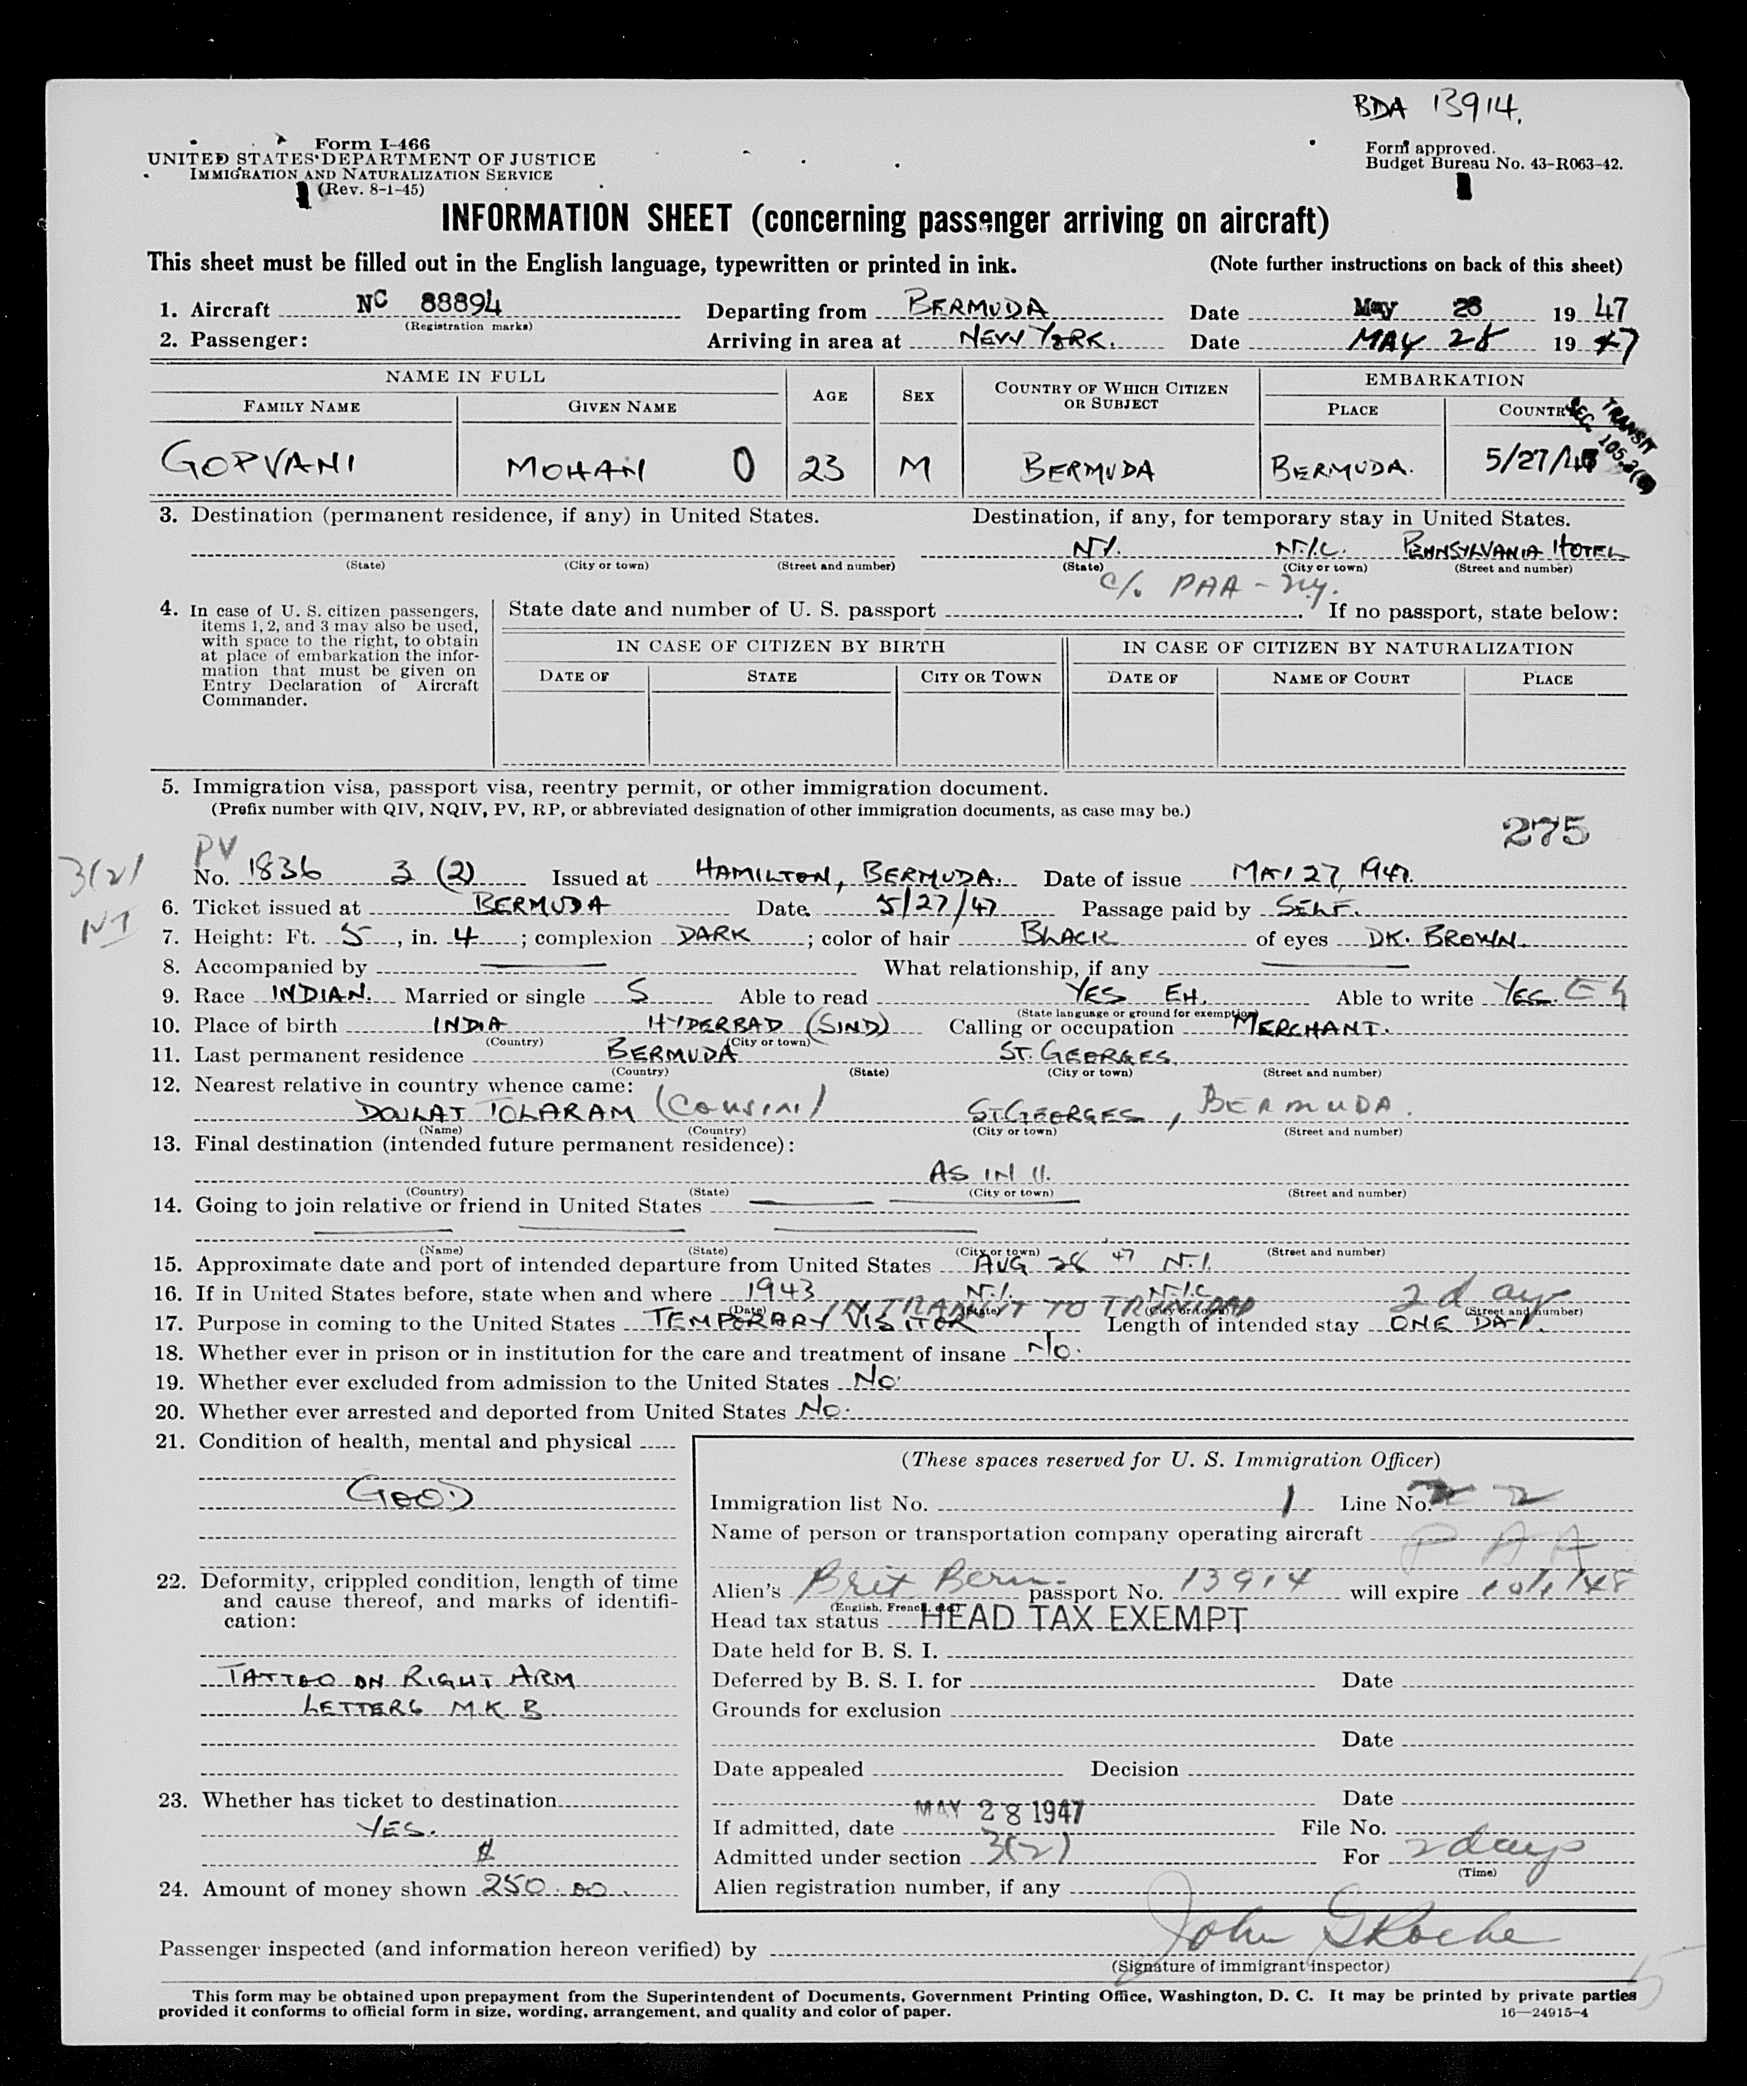 BDA 13914.
Form I-466
UNITED STATES DEPARTMENT OF JUSTICE
IMMIGRATION AND NATURALIZATION SERVICE
(Rev. 8-1-45)
Form approved.
Budget Bureau No. 43-R063-42.
INFORMATION SHEET (concerning passenger arriving on aircraft)
This sheet must be filled out in the English language, typewritten or printed in ink. (Note further instructions on back of this sheet)
1. Aircraft NC 88894 Departing from BERMUDA Date May 28 19 47
(Registration marks)
2. Passenger: Arriving in area at NEW YORK. Date MAY 28 19 47
NAME IN FULL AGE SEX COUNTRY OF WHICH CITIZEN OR SUBJECT EMBARKATION
FAMILY NAME GIVEN NAME PLACE COUNTRY
TRANSIT
SEC. 105.3
GOPVANI MOHAN O 23 M BERMUDA BERMUDA. 5/27/47
3. Destination (permanent residence, if any) in United States. Destination, if any, for temporary stay in United States.
NY. N.Y.C. PENNSYLVANIA HOTEL
(State) (City or town) (Street and number) (State) (City or town) (Street and number)
c/o PAA - N.Y.
4. In case of U. S. citizen passengers, items 1, 2, and 3 may also be used, with space to the right, to obtain at place of embarkation the information that must be given on Entry Declaration of Aircraft Commander.
State date and number of U. S. passport . If no passport, state below:
IN CASE OF CITIZEN BY BIRTH IN CASE OF CITIZEN BY NATURALIZATION
DATE OF STATE CITY OR TOWN DATE OF NAME OF COURT PLACE
5. Immigration visa, passport visa, reentry permit, or other immigration document.
(Prefix number with QIV, NQIV, PV, RP, or abbreviated designation of other immigration documents, as case may be.)
275
3(2)
PV
No. 1836 3 (2) Issued at HAMILTON, BERMUDA. Date of issue MAY 27, 1947.
6. Ticket issued at BERMUDA Date 5/27/47 Passage paid by SELF.
7. Height: Ft. 5, in. 4; complexion DARK; color of hair BLACK of eyes DK. BROWN.
8. Accompanied by — What relationship, if any —
9. Race INDIAN. Married or single S Able to read YES EH. Able to write YES.
(State language or ground for exemption)
10. Place of birth INDIA HYDERBAD (SIND) Calling or occupation MERCHANT.
(Country) (City or town)
11. Last permanent residence BERMUDA ST. GEORGES.
(Country) (State) (City or town) (Street and number)
12. Nearest relative in country whence came:
DOULAT TOLARAM (Cousin) ST. GEORGES, BERMUDA.
(Name) (Country) (City or town) (Street and number)
13. Final destination (intended future permanent residence):
AS IN 11.
(Country) (State) (City or town) (Street and number)
14. Going to join relative or friend in United States — —
— — —
(Name) (State) (City or town) (Street and number)
15. Approximate date and port of intended departure from United States AUG 28 47 N.Y.
16. If in United States before, state when and where 1943 N.Y. N.Y.C.
(Date) (State) (City or town) (Street and number)
IN TRANSIT TO TRINIDAD 2 days
17. Purpose in coming to the United States TEMPORARY VISITOR Length of intended stay ONE DAY.
18. Whether ever in prison or in institution for the care and treatment of insane No.
19. Whether ever excluded from admission to the United States No.
20. Whether ever arrested and deported from United States No.
21. Condition of health, mental and physical
GOOD
22. Deformity, crippled condition, length of time and cause thereof, and marks of identification:
TATTOO ON RIGHT ARM
LETTERS M.K.B
23. Whether has ticket to destination
YES.
$
24. Amount of money shown 250.00.
(These spaces reserved for U. S. Immigration Officer)
Immigration list No. 1 Line No. 2
Name of person or transportation company operating aircraft
PAA
Alien's Brit Berm. passport No. 13914 will expire 10/1/48
(English, French, etc.)
Head tax status HEAD TAX EXEMPT
Date held for B. S. I.
Deferred by B. S. I. for Date
Grounds for exclusion
Date
Date appealed Decision
Date
If admitted, date MAY 28 1947 File No.
Admitted under section 3(2) For 2 days
(Time)
Alien registration number, if any
Passenger inspected (and information hereon verified) by John G Roche
(Signature of immigrant inspector)
This form may be obtained upon prepayment from the Superintendent of Documents, Government Printing Office, Washington, D. C. It may be printed by private parties
provided it conforms to official form in size, wording, arrangement, and quality and color of paper. 16—24915-4